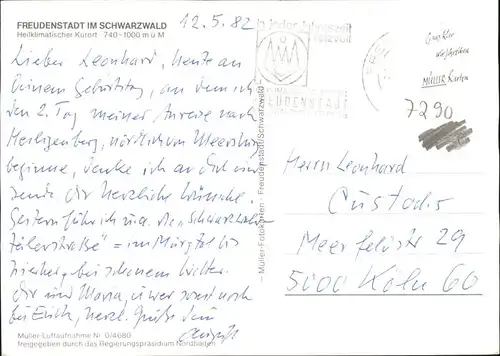 FREUDENSTADT IM SCHWARZWALD
Heilklimatischer Kurort 740-1000 m ü M
12.5.82
Lieber Leonhard, heute an
Deinem Geburtstag, an dem ich
den 2. Tag meiner Anreise nach
Heiligenberg, nördlich von Meersburg
beginne, denke ich an Dich und
sende Dir herzliche Wünsche.
Gestern fuhr ich u.a. die "Schwarzwälder
Täler straße" = im Murgtal bis
hierher bei schönem Wetter.
Dir und Maria,
bei Edith, herzl. Grüße Dein
Müller-Luftaufnahme Nr. 0/4680
freigegeben durch das Regierungspräsidium Nordbaden
– Müller-Fotokarten - Freudenstadt/Schwarzwald
in jeder Jahreszeit
FREUDENSTADT
MÜLLER Karten
7290
Herrn Leonhard
Custodis
Meerfeldstr 29
5000 Köln 60